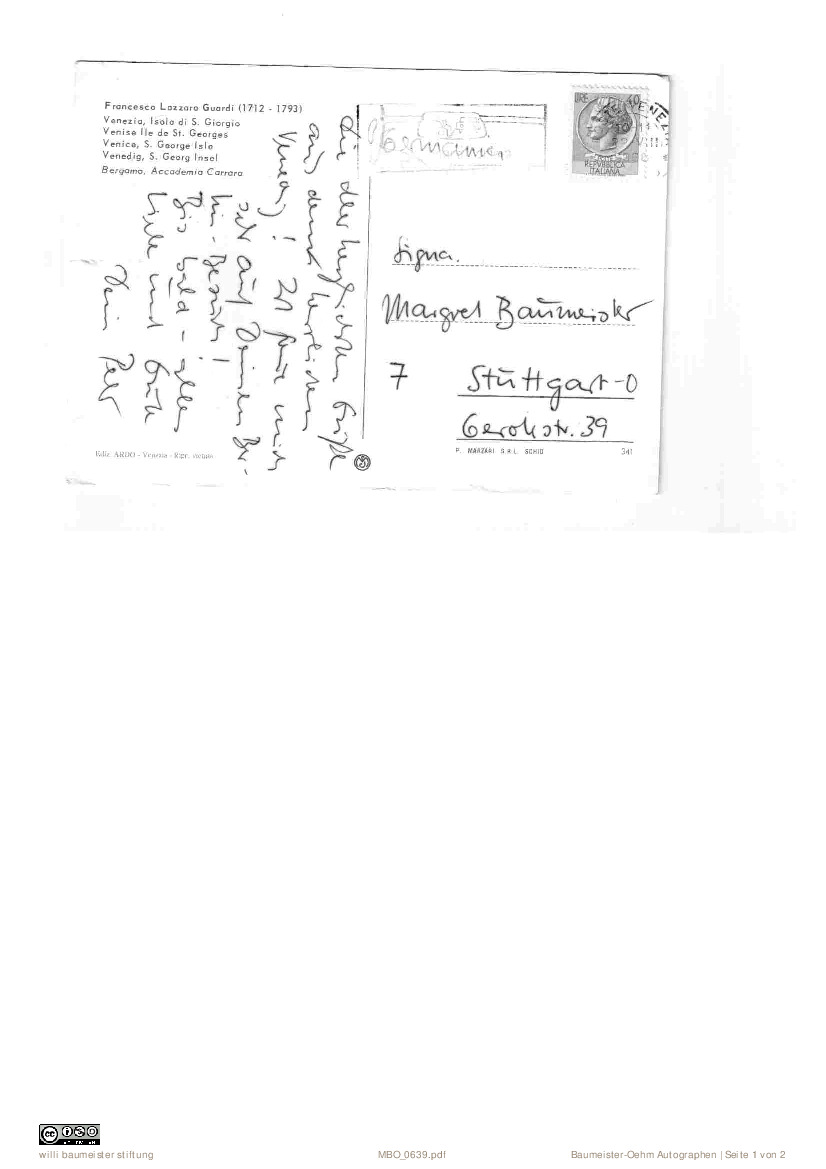 Francesco Lazzaro Guardi (1712 - 1793)
Venezia, Isola di S. Giorgio
Venise Ile de St. Georges
Venice, S. George Isle
Venedig, S. Georg Insel
Bergamo, Accademia Carrara
Die allerherzlichsten Grüße
aus dem herrlichen
Venedig! Ich freue mich
sehr auf Deinen Ber-
lin-Besuch!
Bis bald - alles
Liebe und Gute
Dein Peter
Ediz. ARDO - Venezia - Ripr. vietata
Germania
LIRE 40
REPVBBLICA
ITALIANA
VENEZ
VIII
Signa.
Margret Baumeister
7 Stuttgart-O
Gerokstr. 39
P. MARZARI S.R.L. SCHIO 341
willi baumeister stiftung MBO_0639.pdf Baumeister-Oehm Autographen | Seite 1 von 2